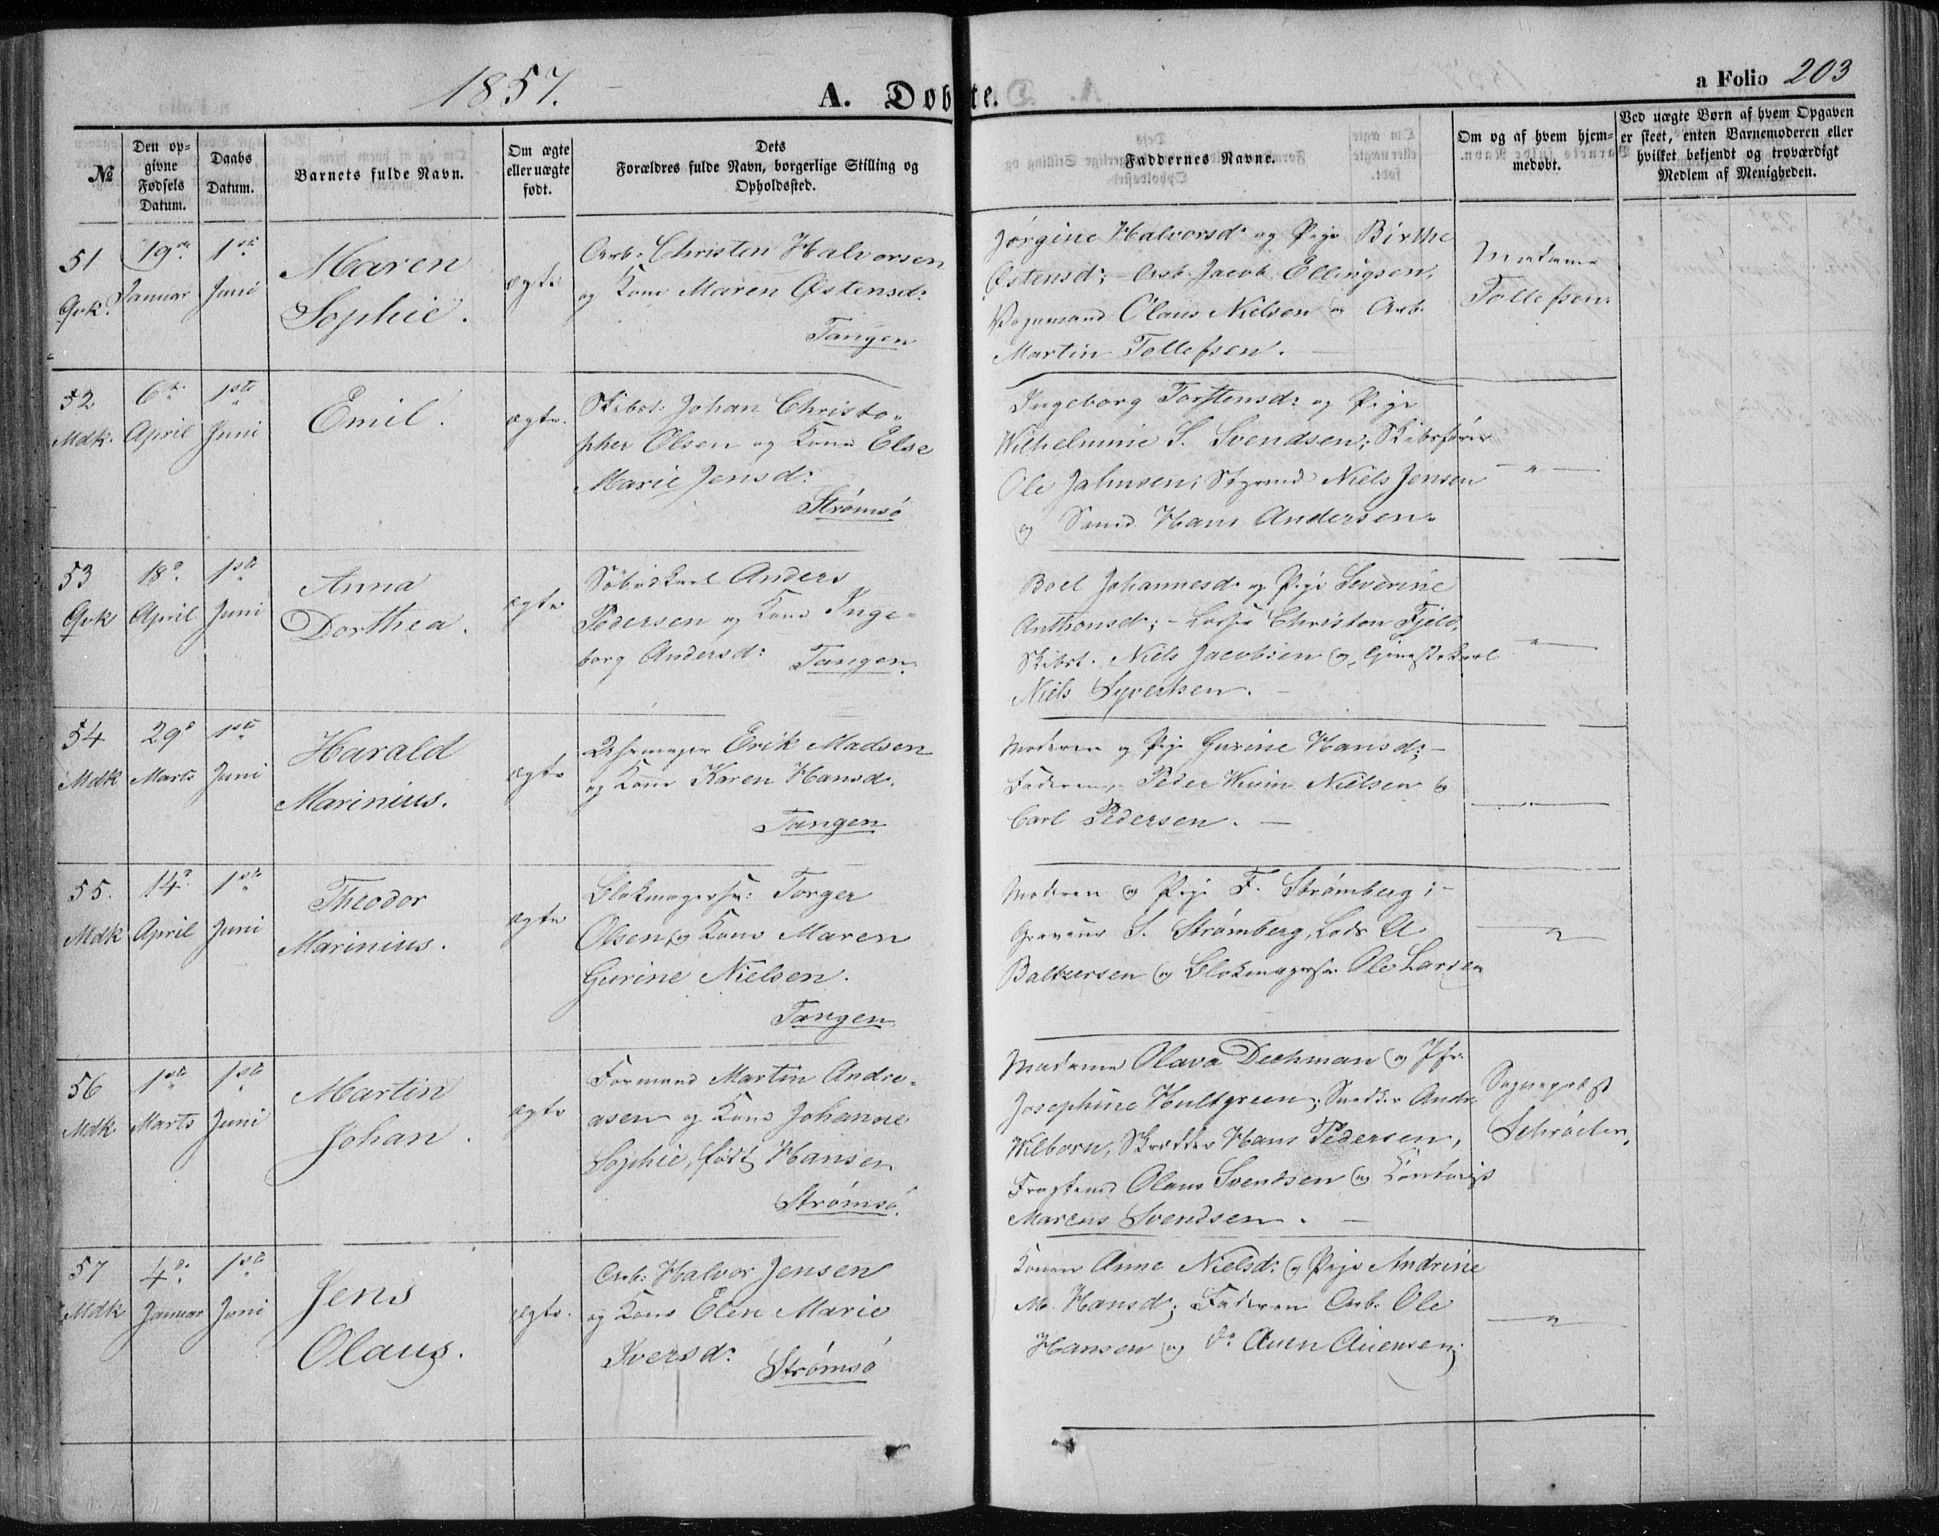 1857.
A. Døbte.
a Folio 203
№
Den op-
givne
Fødsels
Datum.
Daabs
Datum.
Barnets fulde Navn.
Om ægte
eller uægte
født.
Dets
Forældres fulde Navn, borgerlige Stilling og
Opholdssted.
Faddernes Navne.
Om og af hvem hjem-
medøbt.
Ved uægte Børn af hvem Opgaven
er skeet, enten Barnemoderen eller
hvilket bekjendt og troværdigt
Medlem af Menigheden.
51
Qvk.
19de
Januar
1ste
Juni
Maren
Sophie.
ægte
Arb: Christen Halvorsen
og Kone Maren Østensd:
Tangen
Jørgine Halvorsd: og Pige Birthe
Østensd; - Arb. Jacob Ellingsen,
Olaus Nielsen og Arb.
Martin Tollefsen.
Madame
Tollefsen.
52
Mdk.
6te
April
1ste
Juni
Emil.
ægte.
Skibst: Johan Christo-
pher Olsen og Kone Else
Marie Jensd:
Strømsø
Ingeborg Torstensd: og Pige
Wilhelmine S. Svendsen; Skibsfører
Ole Jahnsen; Styrmd Niels Jensen
og Sømd. Hans Andersen.
— " —
53
Qvk
18de
April
1ste
Juni
Anna
Dorthea.
ægte
Anders
Pedersen og Kone Inge-
borg Andersd: Tangen.
Boel Johannesd. og Pige Severine
Anthonsd; - Christen Fjeld,
Skibst. Niels Jacobsen og
Niels Syvertsen.
"
54
Mdk
29de
Marts
1ste
Juni
Harald
Marinius.
ægte
Uhrmager Erik Madsen
og Kone Karen Hansd.
Tangen
Moderen og Pige Gurine Hansd; -
Faderen, Peder Nielsen og
Carl Pedersen. —
— " —
55.
Mdk
14de
April
1ste
Juni
Theodor
Marinius.
ægte
Blokmagersv: Torger
Olsen og Kone Maren
Gurine Nielsen.
Tangen
Moderen og Pige F. Strømberg; -
Graveur S. Strømberg, Lods A
Baltzersen og Blokmagersv. Ole Larsen
— " —
56
Mdk
1ste
Marts
1ste
Juni
Martin
Johan.
ægte
Formand Martin Andre-
asen og Kone Johanne
Sophie, født Hansen
Strømsø
Madame Olava Dechman og Jfr.
Josephine Hultgreen; Snedker Andr.
Wilborn, Skrædder Hans Pedersen,
Olaus Svendsen og Contorist
Marcus Svendsen. —
Sognepræst
Schrøeter.
57
Mdk
4de
Januar
1ste
Juni
Jens
Olaus.
ægte.
Arb: Halvor Jensen
og Kone Elen Marie
Iversd: Strømsø
Konen Anne Nielsd: og Pige Andrine
M. Hansd; Faderen Arb. Ole
Hansen og do Auen Auensen.
— " —